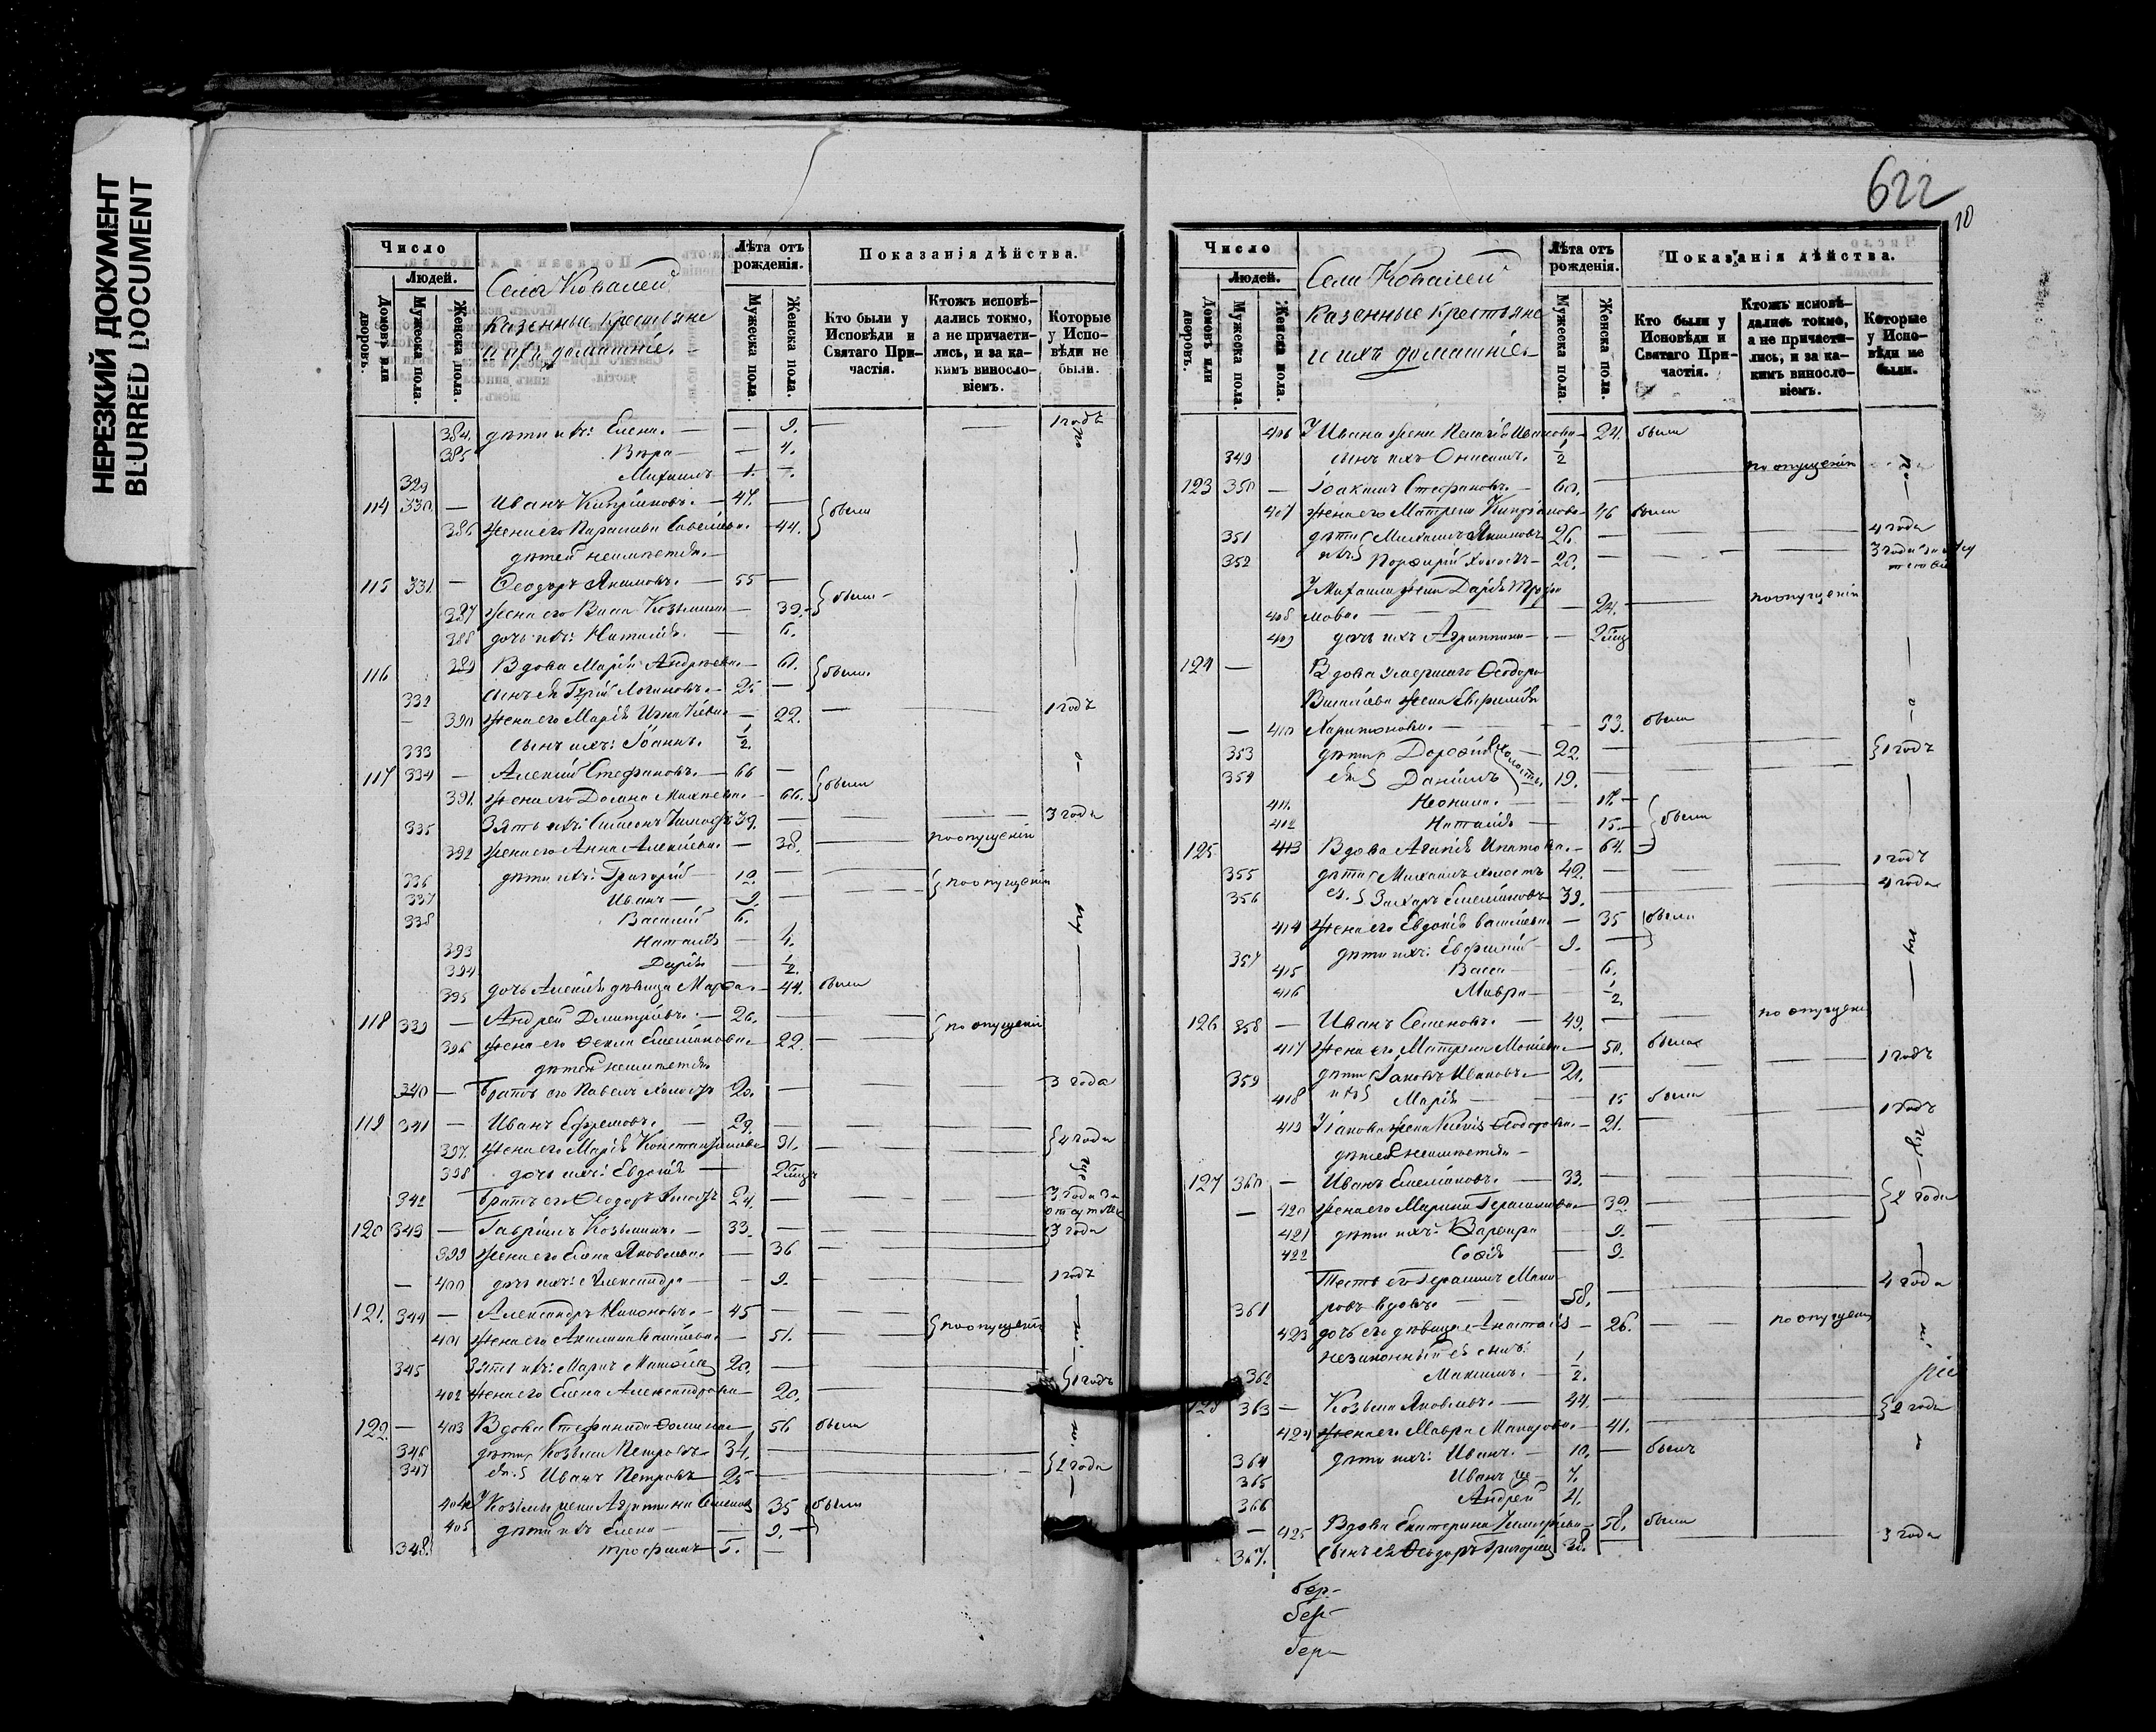 НЕРЕЗКИЙ ДОКУМЕНТ
BLURRED DOCUMENT
Число
Людей.
Домовъ или дворовъ.
Мужеска пола.
Женска пола.
Села Ковалей
казенные крестьяне
и ихъ домашніе.
Лѣта отъ рожденія.
Мужеска пола.
Женска пола.
Показанія дѣйства.
Кто были у Исповѣди и Святаго Причастія.
Ктожъ исповѣдались токмо, а не причастились, и за какимъ винословіемъ.
Которые у Исповѣди не были.
384. дѣти ихъ: Елена. — 9. 1 годъ
385 Вѣра — 4.
329 Михаилъ 1.
114 330. — Иванъ Кипріяновъ. — 47. —
386 жена его Параскева Савельева. 44. были
дѣтей неимѣетъ
115 331. — Ѳеодоръ Якимовъ. — 55 —
387 жена его Васса Козьмина — 39. были
388 дочь ихъ: Наталія. — 6.
116 389 Вдова Марія Андреева. — 61. были
332 сынъ ея Гурій Логиновъ. — 25 —
390 жена его Марія Игнатіева — 22. 1 годъ
333 сынъ ихъ: Іоаннъ. 1/2.
117 334 — Алексій Стефановъ. — 66 —
391. жена его Домна Михеева. — 66. были
335 Зять ихъ: Симеонъ 39. 3 года
392 жена его Анна Алексіева. — 38. по опущенію
336 дѣти ихъ: Григорій — 10 — по опущенію
337 Иванъ — 9. —
338 Василій 6.
393 Наталія — 4.
394 Дарія 1/2.
395 дочь Алексія дѣвица Марѳа. — 44. была
118 339 — Андрей Димитріевъ. — 26. — по опущенію
396 жена его Ѳекла Емеліанова 22.
дѣтей неимѣетъ
340 — братъ его Павелъ холостъ 20. — 3 года
119 341 — Иванъ Ефремовъ. — 29.
397. жена его Марія Константинова 31. 4 года
398 дочь ихъ: Евдокія — 2 мѣсяц.
342 братъ его Ѳеодоръ холостъ 24. — 3 года за
120 343 — Гавріилъ Козьминъ. — 33. — 3 года
399 жена его Елена Яковлева. — 36
400 дочь ихъ: Александра — 9. 1 годъ
121. 344 — Александръ Никоновъ. — 45 —
401 жена его Акилина Василіева — 51. по опущенію
345 Зять ихъ: Маркъ 20. —
402 жена его Елена Александрова — 20. 1 годъ
122. — 403 Вдова Стефанида Ѳомина — 56 была
346. дѣти Козьма Петровъ 34. —
347 ея Иванъ Петровъ — 25 2 года
404 У Козьмы жена Агриппина 35 были
405 дѣти ихъ Елена — 9. —
348. Трофимъ — 5. —
622
10
Число
Людей.
Домовъ или дворовъ.
Мужеска пола.
Женска пола.
Села Ковалей
казенные крестьяне
и ихъ домашніе
Лѣта отъ рожденія.
Мужеска пола.
Женска пола.
Показанія дѣйства.
Кто были у Исповѣди и Святаго Причастія.
Ктожъ исповѣдались токмо, а не причастились, и за какимъ винословіемъ.
Которые у Исповѣди не были.
406 У Ивана жена Пелагія Иванова — 24. была
349 сынъ ихъ Онисимъ. 1/2
123 350 — Іоакимъ Стефановъ. — 60. — по опущенію
407 жена его Матрена 46 была
351 дѣти Михаилъ Якимовъ 26. 4 года
352 ихъ Порфирій холостъ — 20. 3 года
У Михаила жена Дарія Трофи
408 мова. — 24. по опущенію
409 дочь ихъ Агриппина — 2 мѣсяц
124 — Вдова умершаго Ѳеодора
Василіева жена Евфимія
410 Харитонова. — 53. была
353 дѣти Дороѳей 22. 1 годъ
354 ея Даніилъ холосты. 19. —
411. Неонила. — 17. —
412 Наталія — 15. были
125. 413 Вдова Агапія Ипатова. — 64.
355 дѣти Михаилъ холостъ 42. — 1 годъ
356 ея Захаръ Емеліановъ 39. — 4 года
414 жена его Евдокія Василіева — 35 были
357 дѣти ихъ: Евфимій — 9. —
415 Васса — 6.
416 Мавра — 1/2.
126 358 — Иванъ Семеновъ. — 49. — по опущенію
417 жена его Матрена 50. была
359 дѣти Іаковъ Ивановъ — 21. 1 годъ
418 ихъ Марія — 15 была
419 У Іакова жена Ксенія Ѳеодорова. — 21. 1 годъ
дѣтей неимѣетъ —
127 360 — Иванъ Емеліановъ. — 33.
420 жена его Марина Герасимова 32. 2 года
421 дѣти ихъ: Варвара — 9.
422 Софія — 9.
Тесть его Герасимъ Мака
361 ровъ вдовъ. 58. 4 года
423 дочь его дѣвица Анастасія — 26. по опущенію
незаконный ея сынъ:
362 Максимъ. — 1/2.
128 363 — Козьма Яковлевъ. — 44. — 2 года
424 жена его Мавра Макарова. — 41.
364 дѣти ихъ: Иванъ. — 10. — былъ
365 Иванъ — 7.
366 Андрей 4.
425 Вдова Екатерина 58. была
367. сынъ ея Ѳеодоръ Григорьевъ 38. 3 года
бер-
бер-
бер-